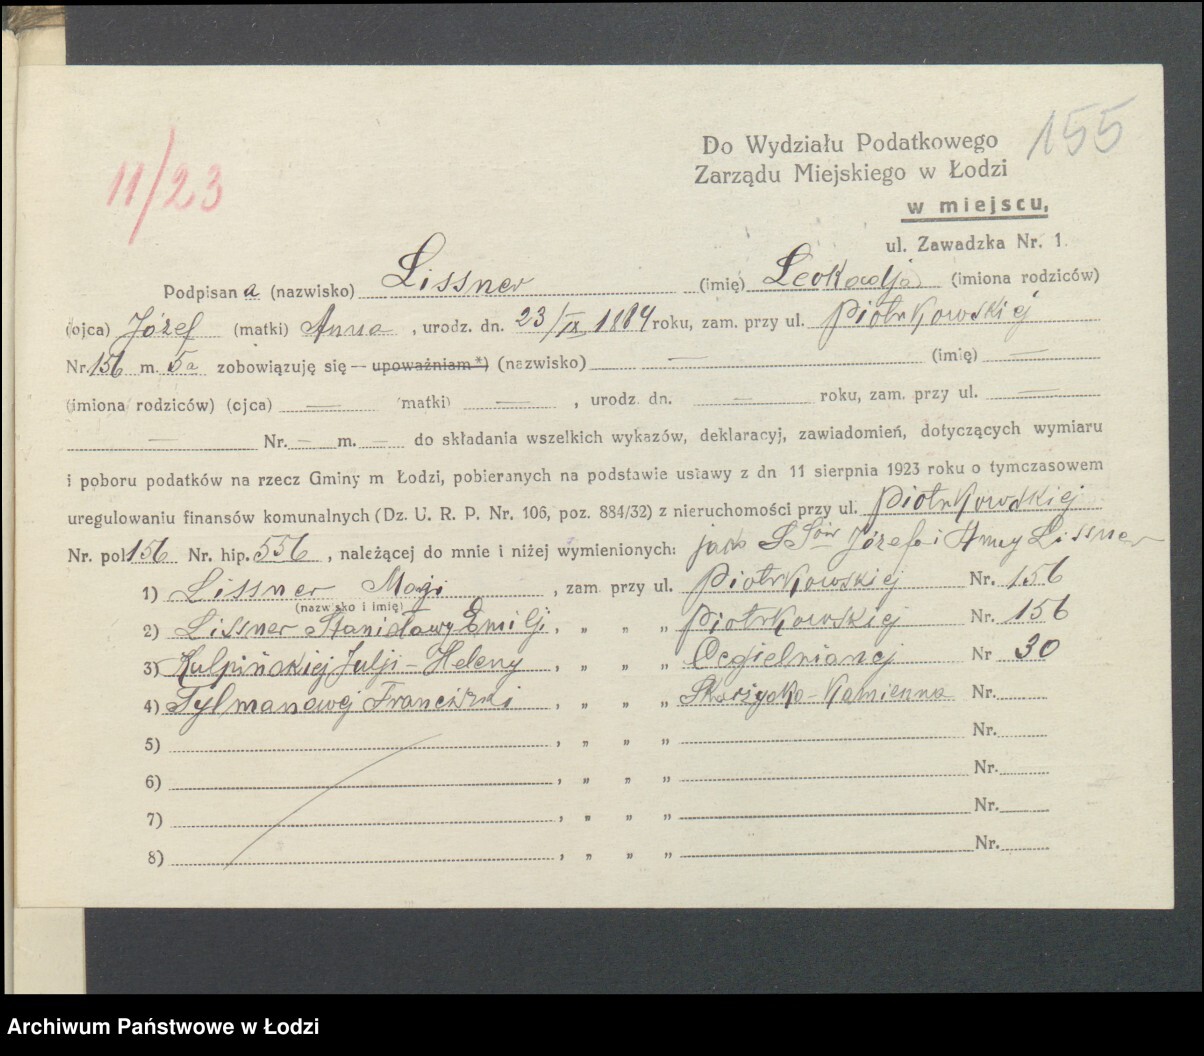 155
11/23
Do Wydziału Podatkowego
Zarządu Miejskiego w Łodzi
w miejscu,
ul. Zawadzka Nr. 1.
Podpisan a (nazwisko) Lissner (imię) Leokadja (imiona rodziców)
(ojca) Józef (matki) Anna , urodz. dn. 23/IX. 1884 roku, zam. przy ul. Piotrkowskiej
Nr. 156 m. 5a zobowiązuję się — upoważniam *) (nazwisko) — (imię) —
(imiona rodziców) (ojca) — (matki) — , urodz. dn. — roku, zam. przy ul. —
— Nr. — m. — do składania wszelkich wykazów, deklaracyj, zawiadomień, dotyczących wymiaru
i poboru podatków na rzecz Gminy m Łodzi, pobieranych na podstawie ustawy z dn 11 sierpnia 1923 roku o tymczasowem
uregulowaniu finansów komunalnych (Dz. U. R. P. Nr. 106, poz. 884/32) z nieruchomości przy ul. Piotrkowskiej
Nr. pol 156 Nr. hip. 556 , należącej do mnie i niżej wymienionych: jako SSów Józefa i Anny Lissner
1) Lissner Maji , zam. przy ul. Piotrkowskiej Nr. 156
(nazwisko i imię)
2) Lissner Stanisławy Emilji , „ „ „ Piotrkowskiej Nr. 156
3) Kulpińskiej Julji - Heleny , „ „ „ Cegielnianej Nr 30
4) Tylmanowej Franciszki , „ „ „ Skarżysko - Kamienna Nr.
5) , „ „ „ Nr.
6) , „ „ „ Nr.
7) , „ „ „ Nr.
8) , „ „ „ Nr.
Archiwum Państwowe w Łodzi